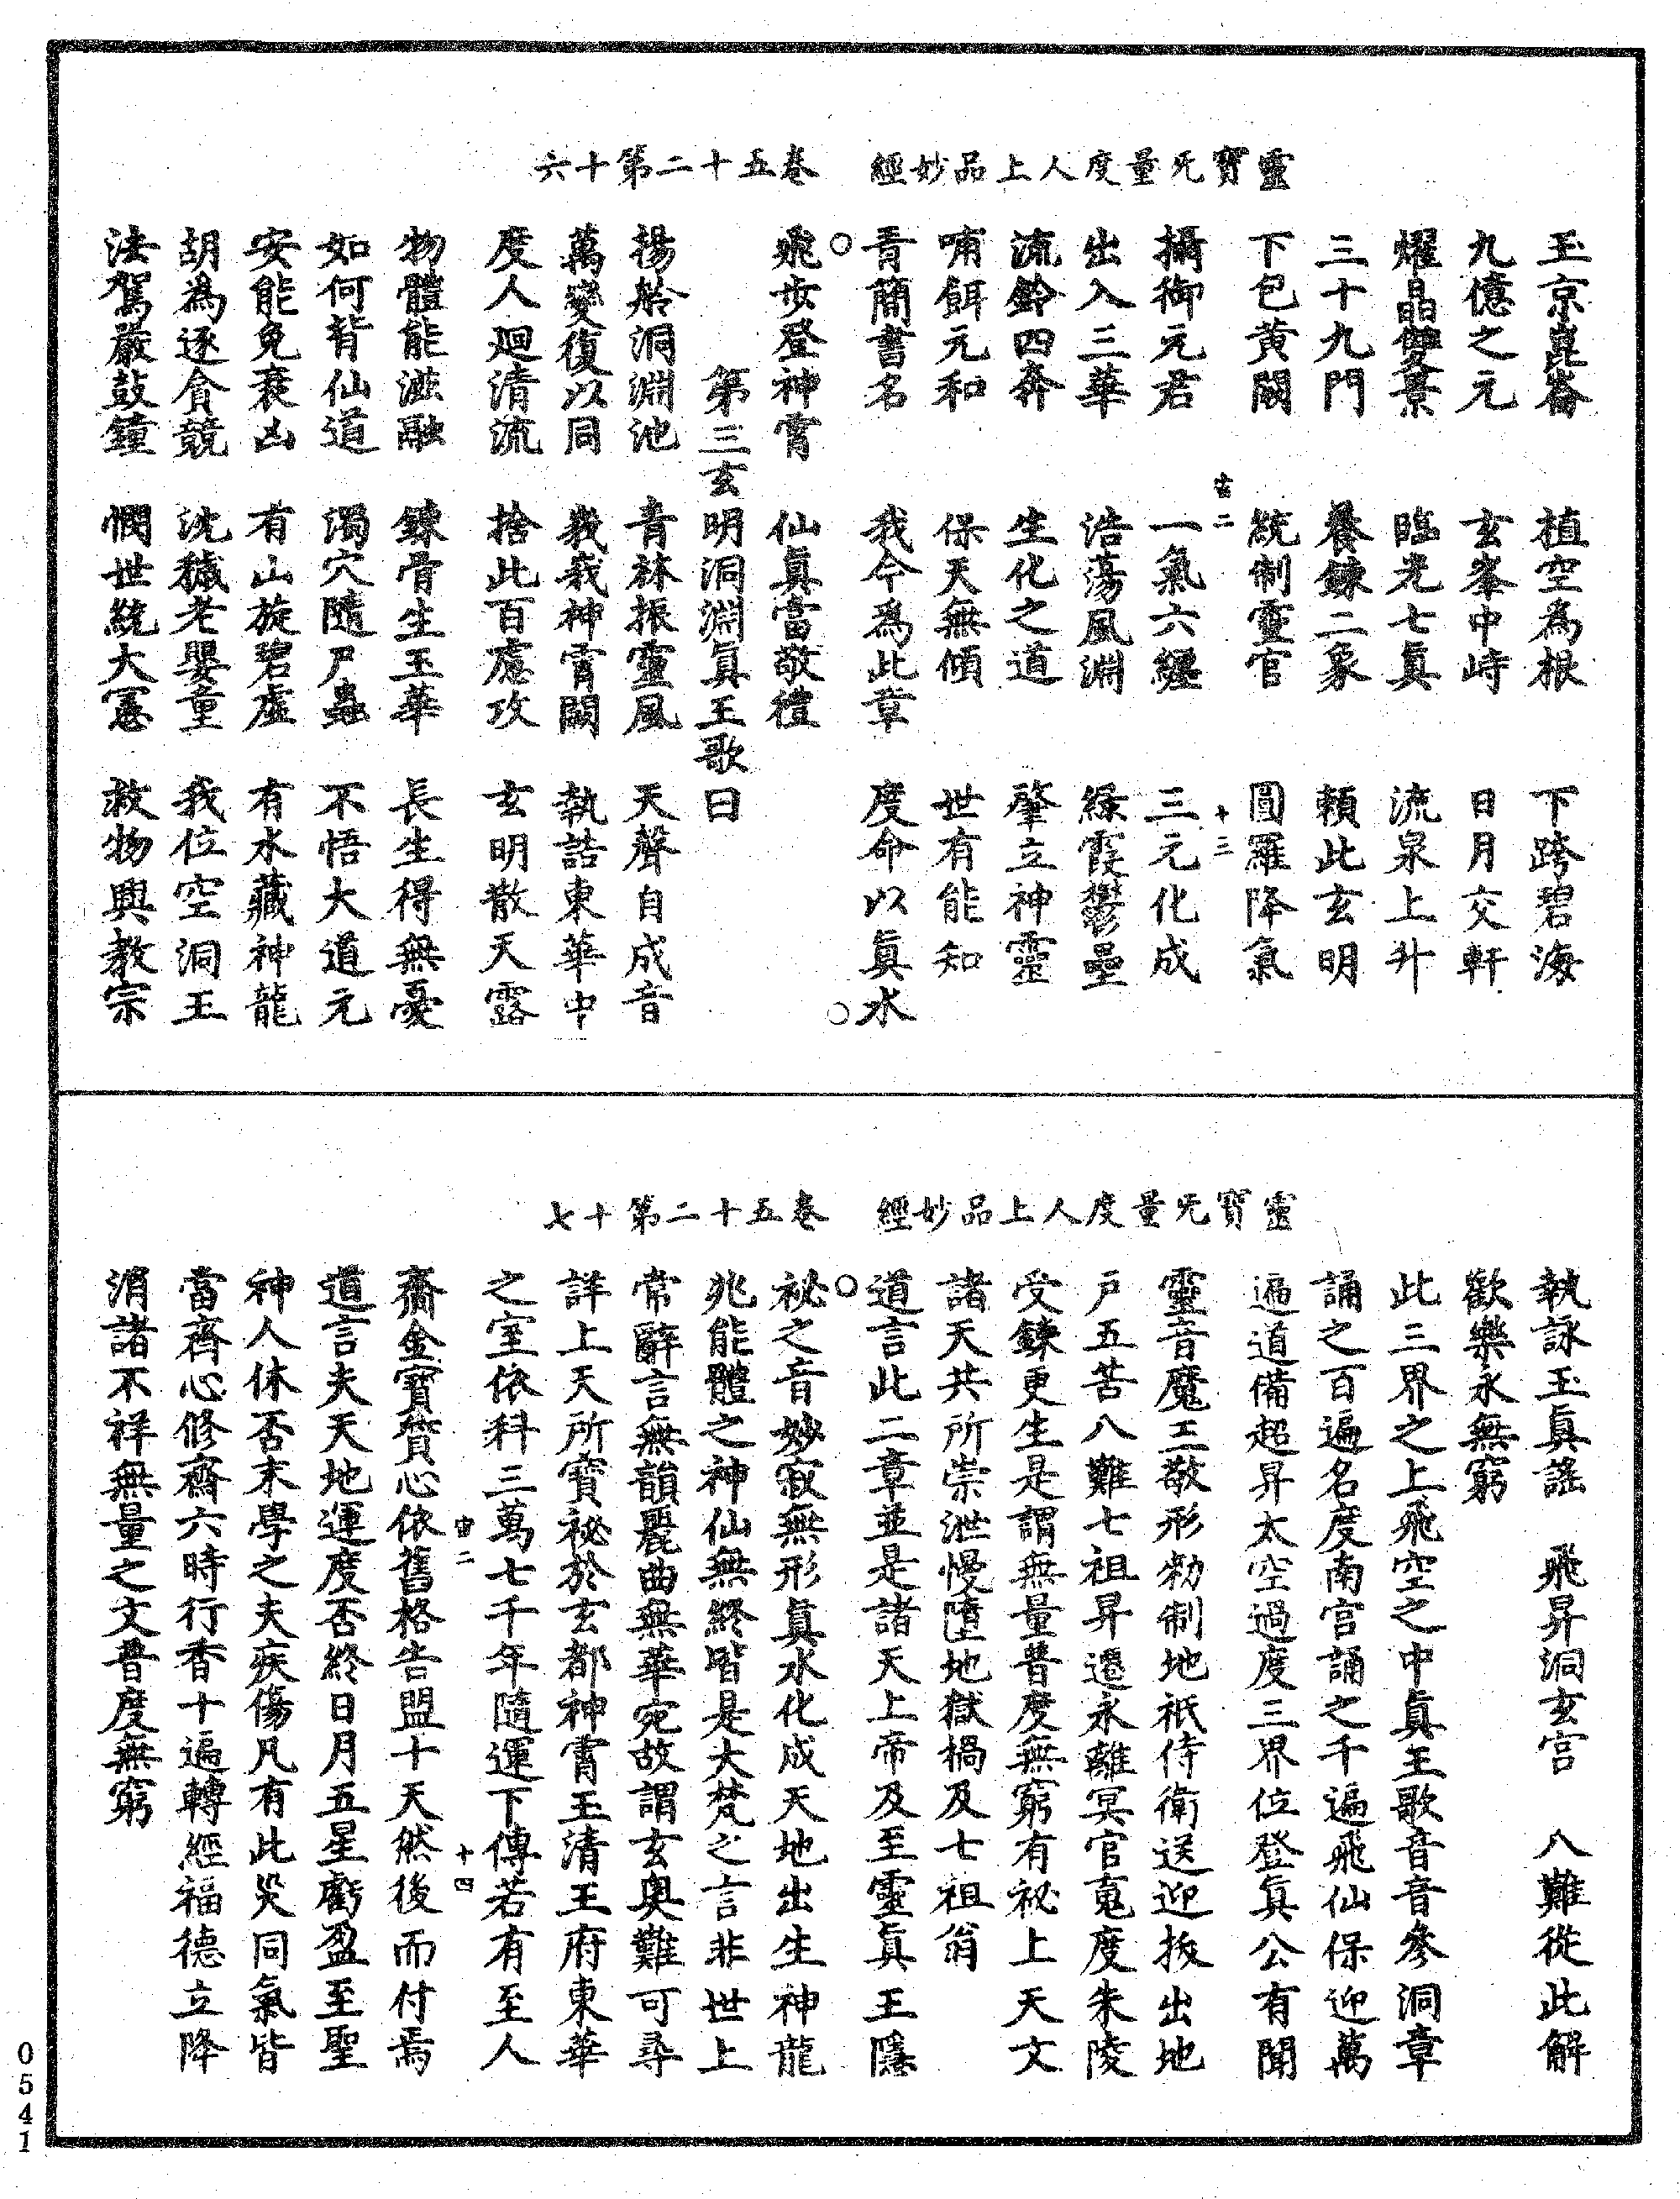 靈寶旡量度人上品妙經　卷五十二第十六
玉京崑崙　植空為根　下跨碧海
九億之元　玄峯中峙　日月交軒
燿晶儼景　臨光七眞　流泉上升
三十九門　養鍊二象　頼此玄明
下包黄闕　統制靈官　圓羅降氣
宙二　十三
攝御元君　一氣六纒　三元化成
出入三華　浩蕩風淵　綠霞鬱壘
流鈴四奔　生化之道　肇立神靈
哺餌元和　保天無傾　世有能知
青簡書名　我今為此章　度命以眞水
飛步登神霄　仙眞當敬禮
第三玄明洞淵眞王歌曰
揚舲洞淵池　青林振靈風　天聲自成音
萬變復以同　峩峩神霄闕　執誥東華中
度人廻清流　捨此百慮攻　玄明散天露
物體能滋融　鍊骨生玉華　長生得無憂
如何背仙道　濁穴隨尸蟲　不悟大道元
安能免衰凶　有山旋碧虛　有水藏神龍
胡為逐貪競　沈穢老嬰童　我位空洞王
法駕嚴鼓鐘　憫世統大憲　救物興教宗
靈寶旡量度人上品妙經　卷五十二第十七
執詠玉眞謡　飛昇洞玄宫　八難從此解
歡樂永無窮
此三界之上飛空之中眞王歌音音參洞章
誦之百遍名度南宫誦之千遍飛仙保迎萬
遍道備超昇太空過度三界位登眞公有聞
靈音魔王敬形勑制地祇侍衛送迎拔出地
户五苦八難七祖昇遷永離冥官䰟度朱陵
受鍊更生是謂無量普度無窮有祕上天文
諸天共所崇泄慢墮地獄禍及七祖翁
道言此二章並是諸天上帝及至靈眞王隱
祕之音妙寂無形眞水化成天地出生神龍
兆能體之神仙無終皆是大梵之言非世上
常辭言無韻麗曲無華宛故謂玄奥難可尋
詳上天所寶祕於玄都神霄玉清王府東華
之室依科三萬七千年隨運下傳若有至人
齎金寶質心依舊格告盟十天然後而付焉
宙二　十四
道言夫天地運度否終日月五星虧盈至聖
神人休否末學之夫疾傷凡有此災同氣皆
當齊心修齋六時行香十遍轉經福德立降
消諸不祥無量之文普度無窮
0541